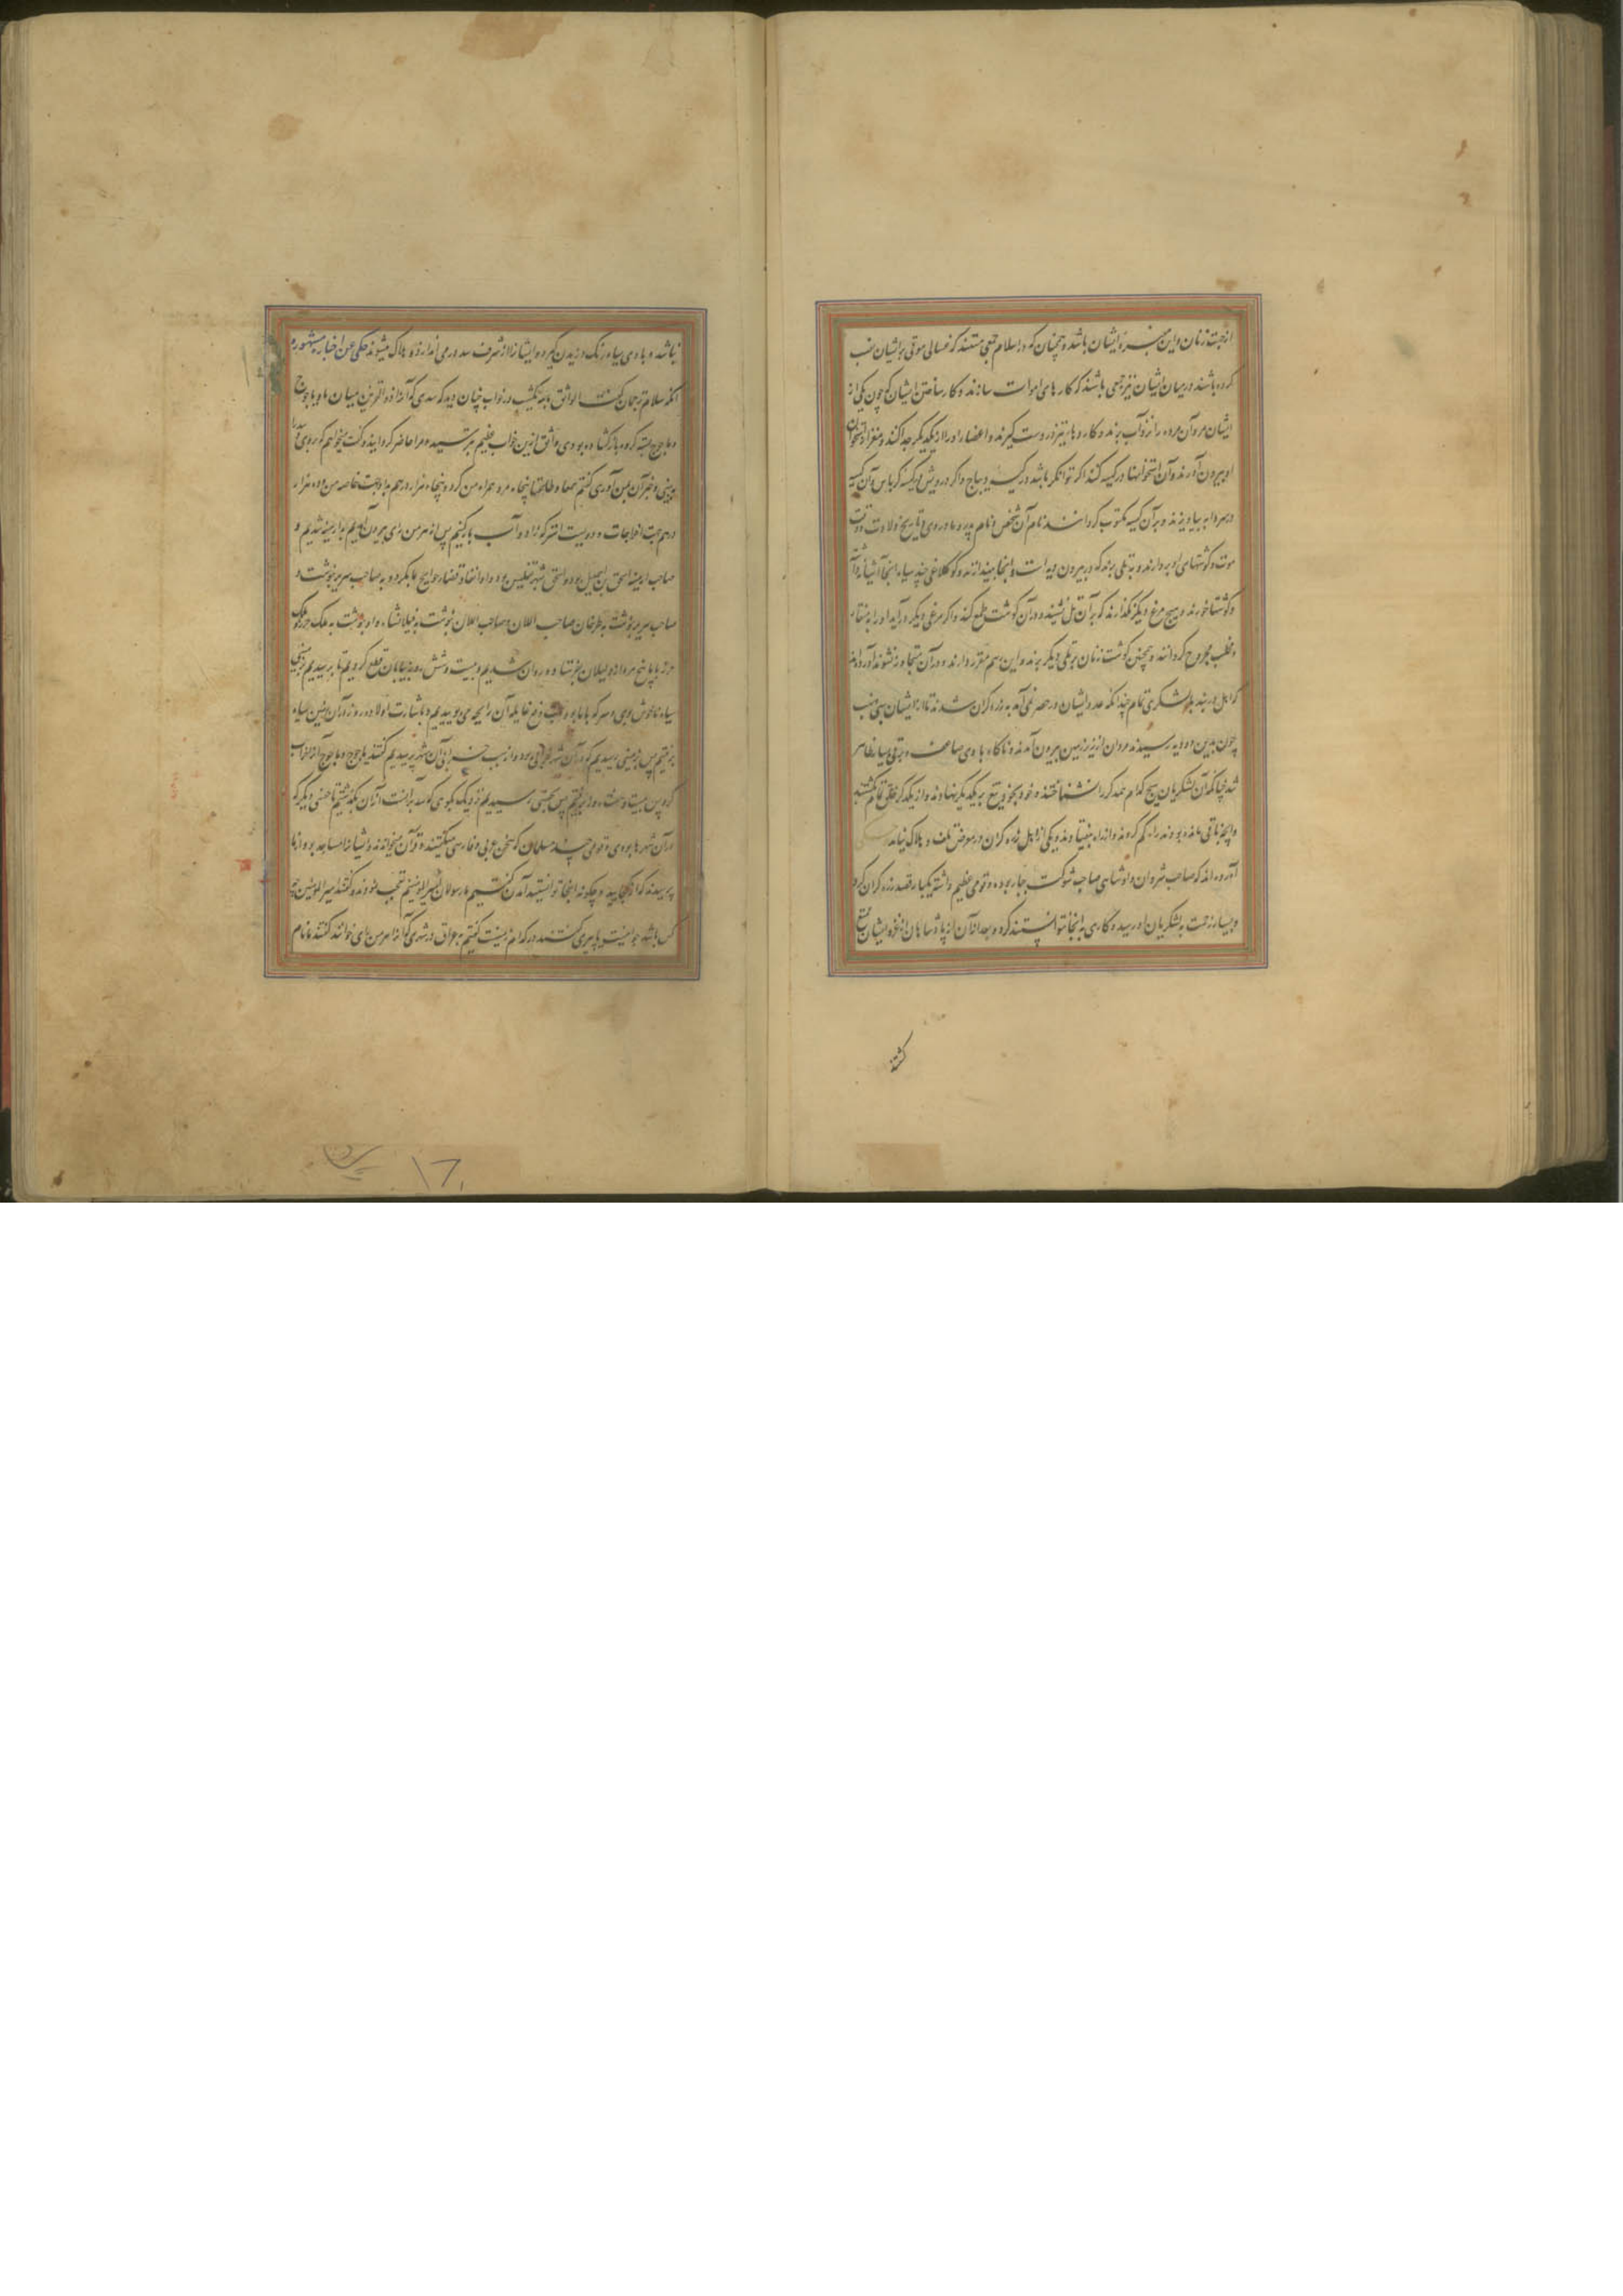 از جهت زنان و این مقبره ایشان باشد و همچنان که در اسلام جمعی هستند که غسالی موتی بر ایشان نصب
کرده باشند در میان ایشان نیز جمعی باشند که کار های اموات سازند و کار ساختن ایشان که چون یکی از
ایشان مرد آن مرده را نزد آب برند و کاردهای تیز در دست گیرند و اعضاء او را از یکدیگر جدا کنند و مغز از استخوان
او بیرون آورند و آن استخوانها در کیسه کنند اگر توانگر باشد در کیسه دیباج و اگر درویش در کیسه کرباس و آن کیسه
در سردابه بیاویزند و بر آن کیسه مکتوب گردانند نام آن شخص و نام پدر و مادر وی و تاریخ ولادت و وقت
موت و گوشتهای او بردارند و به تلی برند که در بیرون دیه است و آنجا بیندازند و کلاغی چند سیاه آنجا آشیانه
و گوشتها خورند و هیچ مرغ دیگر نگذارند که بر آن تل نشیند و در آن گوشت طمع کند و اگر مرغی دیگر در آید او را به منقار
و مخلب مجروح گردانند و همچنین گوشت زنان بر تلی دیگر برند و این رسم مقرر دارند و در آن متجاوز نشوند آورده اند
که اهل دربند با لشکری تمام چندانکه عدد ایشان در حصر نمی آمد به زره گران شدند تا از ایشان سبی و نهب
چون بدین دو دیه رسیدند مردان از زیر زمین بیرون آمدند و ناگاه بادی عاصف و برفی بسیار ظاهر
شد چنانکه آن لشکریان هیچ کدام همدیگر را نشناختند و خود بخود تیغ بر یکدیگر نهادند و از یکدیگر خلق تمام کشتند
و آنچه باقی مانده بودند راه گم کردند و از راه بیفتادند و یکی از اهل زره گران در معرض تلف و هلاک نیامد
آورده اند که صاحب شروان پادشاهی صاحب شوکت جبار بوده و قومی عظیم داشته یکبار قصد زره گران کرد
و بسیار زحمت به لشکریان او رسید و کاری به آنجا نتوانستند کرد و بعد از آن از پادشاهان از غزو ایشان ممتنع
گشتند
نباشد و بادی سیاه رنگ وزیدن گیرد و ایشانرا از شرف سد در می اندازد و هلاک میشوند حکی عن اخباره مشهوره
آنکه سلام ترجمان گفت الواثق بالله یکشب در خواب چنان دید که سدی که آنرا ذو القرنین میان ما و یاجوج
و ماجوج بسته گرده باز گشاده بودی واثق از این خواب عظیم بترسید و مرا حاضر گردانید و گفت میخواهم که بروی آنرا
ببینی و خبر آن بمن آوری گفتم سمعا و طاعتا پنجاه مرد همراه من کرد و پنجاه هزار درهم بداد جهت خاصه من و ده هزار
درهم جهت اخراجات و دویست اشتر که زاد و آب بار کنیم پس از سر من رای بیرون آمدیم بارمینیه شدیم و
صاحب ارمینیه اسحق بن اسمعیل بود و اسحق بشهر تفلیس بود
صاحب سریر نوشت به طرخان صاحب اللان و صاحب اللان نوشت به فیلانشاه و او نوشت به ملک خزر ملک
خزر با پنج مرد از دلیلان بفرستاد و روان شدیم و بیست و شش روز بیابان قطع کردیم تا برسیدیم بزمینی
سیاه ناخوش بوی و سرکه با ما بود
برفتیم پس بزمینی رسیدیم که در آن شهر خرابی بود و از سبب خرابی آن شهر پرسیدیم گفتند یاجوج و ماجوج آنرا خراب
کرده پس بیست و هشت روز برفتیم پس بحصنی رسیدیم نزدیک بکوهی که سد بر آنست از آن بگذشتیم تا حصنی دیگر که
در آن شهرها بودی و قومی چند مسلمان که سخن عربی و فارسی میگفتند و قرآن میخواندند و ایشانرا مساجد بود از ما
پرسیدند که از کجایید و چگونه اینجا توانستید آمدن گفتیم ما رسولان امیر المومنینیم تعجب نمودند و گفتند امیر المومنین چه
کس باشد جوانیست یا پیری گفتند در کدام زمینست گفتیم بعراق در شهری که آنرا سر من رای خوانند گفتند ما نام
۱۷۱